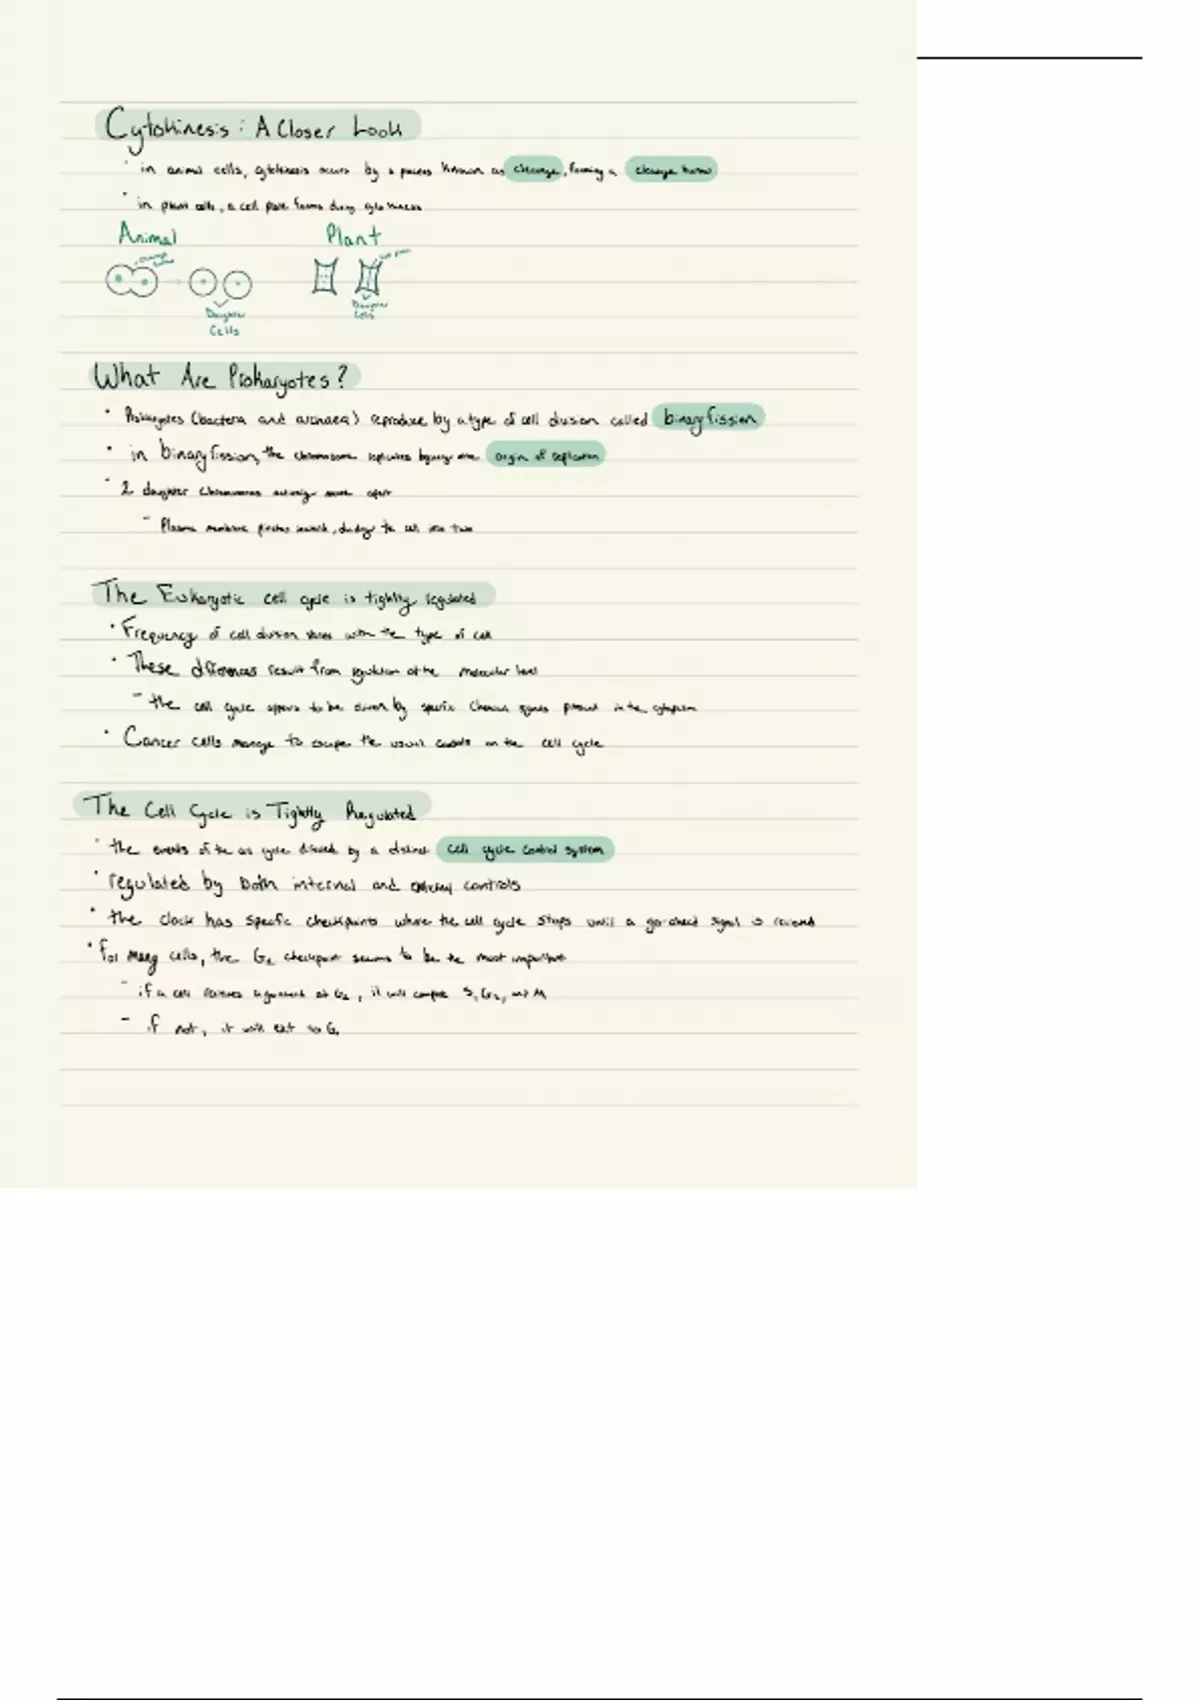 Cytokinesis: A Closer Look
• in animal cells, cytokinesis occurs by a process known as cleavage, forming a cleavage furrow
• in plant cells, a cell plate forms during cytokinesis
Animal Plant
cleavage furrow
Daughter Cells
Daughter Cells
What Are Prokaryotes?
• Prokaryotes (bacteria and archaea) reproduce by a type of cell division called binary fission
• in binary fission, the chromosome replicates origin of replication
• 2 daughter chromosomes actively move apart
- Plasma membrane pinches inward, dividing the cell into two
The Eukaryotic cell cycle is tightly regulated
• Frequency of cell division varies with the type of cell
• These differences result from regulation at the molecular level
- the cell cycle appears to be driven by specific chemical signals present in the cytoplasm
• Cancer cells manage to escape the usual controls on the cell cycle
The Cell Cycle is Tightly Regulated
• the events of the cell cycle directed by a distinct cell cycle control system
• regulated by both internal and external controls
• the clock has specific checkpoints where the cell cycle stops until a go-ahead signal is received
• for many cells, the G1 checkpoint seems to be the most important
- if a cell receives a go-ahead at G1, it will complete S, G2, and M
- if not, it will exit to G